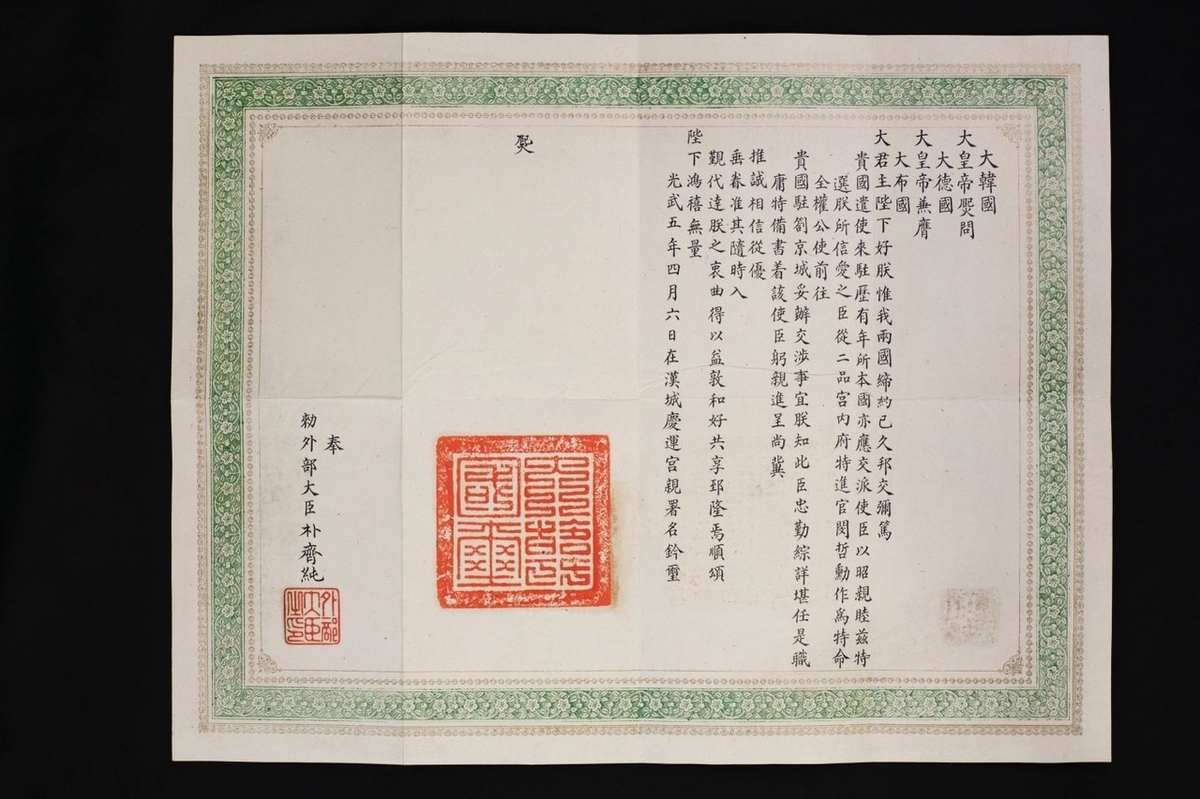 大韓國
大皇帝㷩問
大德國
大皇帝兼膺
大布國
大君主陛下好朕惟我兩國締約已久邦交彌篤
貴國遣使來駐歷有年所本國亦應交派使臣以昭親睦茲特
選朕所信愛之臣從二品宮內府特進官閔哲勳作爲特命
全權公使前往
貴國駐劄京城妥辦交涉事宜朕知此臣忠勤綜詳堪任是職
庸特備書着該使臣躬親進呈尚冀
推誠相信從優
垂眷准其隨時入
覲代達朕之衷曲得以益敦和好共享郅隆焉順頌
陛下鴻禧無量
光武五年四月六日在漢城慶運宮親署名鈐璽
㷩
大韓國璽
奉
勅外部大臣朴齊純
外部大臣之印